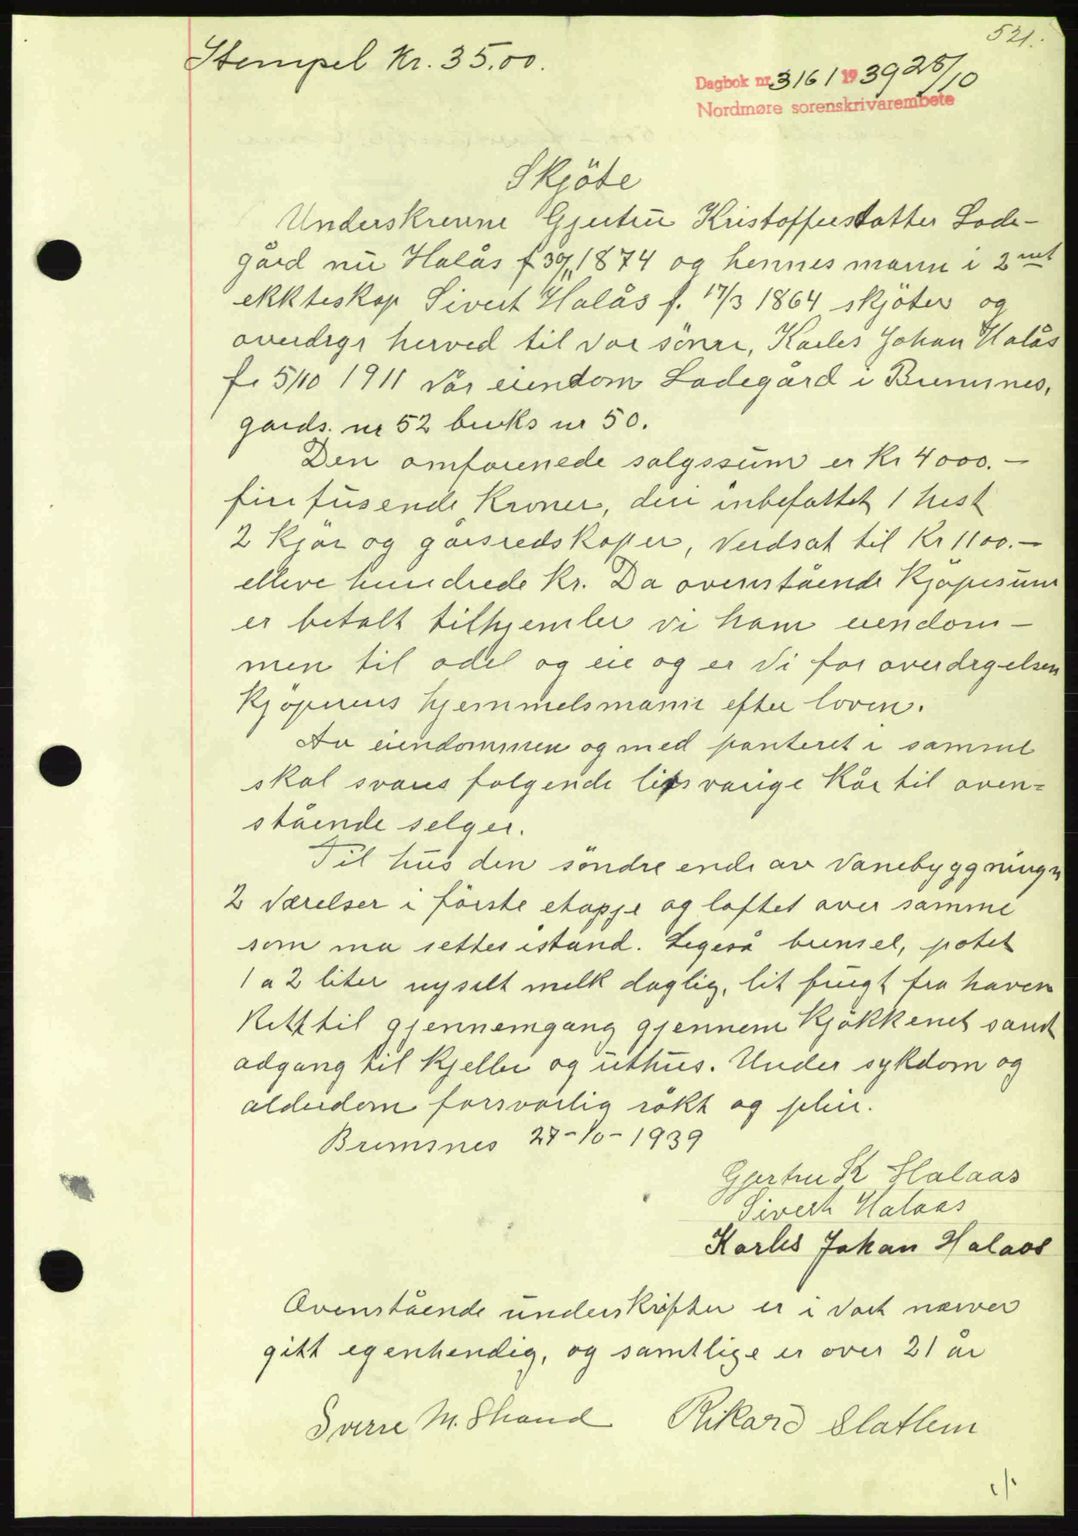 521.
Stempel Kr. 35.00.
Dagbok nr. 3161 1939 28/10
Nordmøre sorenskrivarembete
Skjöte
Underskrevne Gjertru Kristoffersdatter Lade-
gård nu Halås f 30/11 1874 og hennes mann i 2net
ekkteskap Sivert Halås f. 17/3 1864 skjöter og
overdrgr herved til vor sönn, Karles Johan Halås
f. 5/10 1911 vår eiendom Ladegård i Bremsnes,
gards. nr 52 bruks nr 50.
Den omforenede salgssum er Kr 4000.-
fire tusende Kroner, deri inbefattet 1 hest
2 Kjör og gårsredskaper, verdsat til Kr 1100.-
elleve hundrede Kr. Da ovenstående Kjöpesum
er betalt tilhjemler vi ham eiendom-
men til odel og eie og er vi for overdrgelsen
Kjöperens hjemmelsmann efter loven.
Av eiendommen og med panteret i samme
skal svares følgende lifsvarige Kår til oven=
stående selger.
Til hus den söndre ende av vånebyggningn
2 Værelser i förste etapje og loftet over samme
som ma settes istand. Legeså brensel, potet
1 a 2 liter nysilt melk daglig, lit frugt fra haven
Rett til gjennemgang gjennem Kjökkenet samt
adgang til Kjeller og uthus. Under sykdom og
alderdom forsvarlig rökt og pleie.
Bremsnes 27-10-1939
Gjertru K Halaas
Sivert Halaas
Karles Johan Halaas
Ovenstående underskrifter er i vort nærver
gitt egenhendig, og samtlige er over 21 år
Sverre M. Strand Rikard Slatlem
1/1